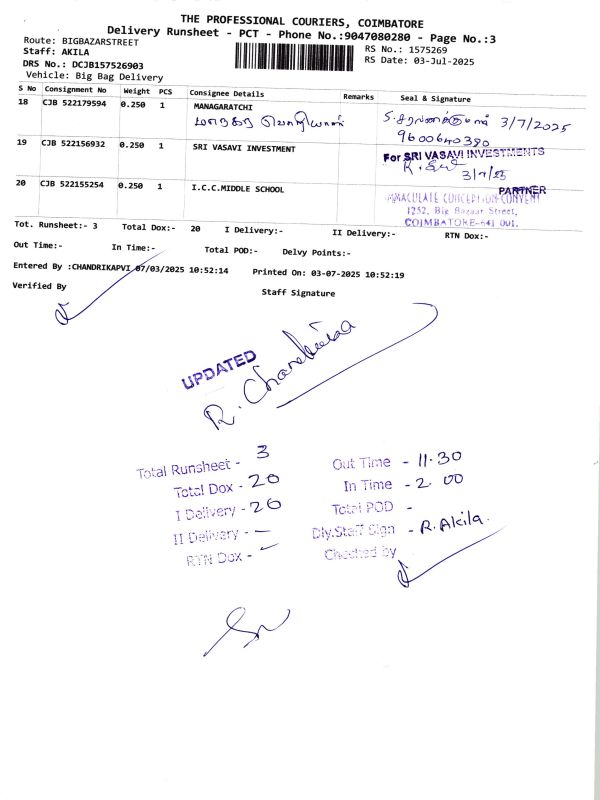 THE PROFESSIONAL COURIERS, COIMBATORE
Delivery Runsheet - PCT - Phone No.:9047080280 - Page No.:3
Route: BIGBAZARSTREET
RS No.: 1575269
Staff: AKILA
RS Date: 03-Jul-2025
DRS No.: DCJB157526903
Vehicle: Big Bag Delivery
S No Consignment No Weight PCS Consignee Details Remarks Seal & Signature
18 CJB 522179594 0.250 1 MANAGARATCHI 3/7/2025
9600640390
19 CJB 522156932 0.250 1 SRI VASAVI INVESTMENT For SRI VASAVI INVESTMENTS
3/7/25
PARTNER
20 CJB 522155254 0.250 1 I.C.C.MIDDLE SCHOOL IMMACULATE CONCEPTION CONVENT
1252, Big Bazaar Street,
COIMBATORE-641 001.
Tot. Runsheet:- 3 Total Dox:- 20 I Delivery:- II Delivery:- RTN Dox:-
Out Time:- In Time:- Total POD:- Delvy Points:-
Entered By :CHANDRIKAPVI 07/03/2025 10:52:14 Printed On: 03-07-2025 10:52:19
Verified By Staff Signature
UPDATED
R. Chandrikaa
Total Runsheet - 3
Total Dox - 20
I Delivery - 20
II Delivery - –
RTN Dox - –
Out Time - 11.30
In Time - 2.00
Total POD -
Dly.Staff Sign - R. Akila.
Checked by